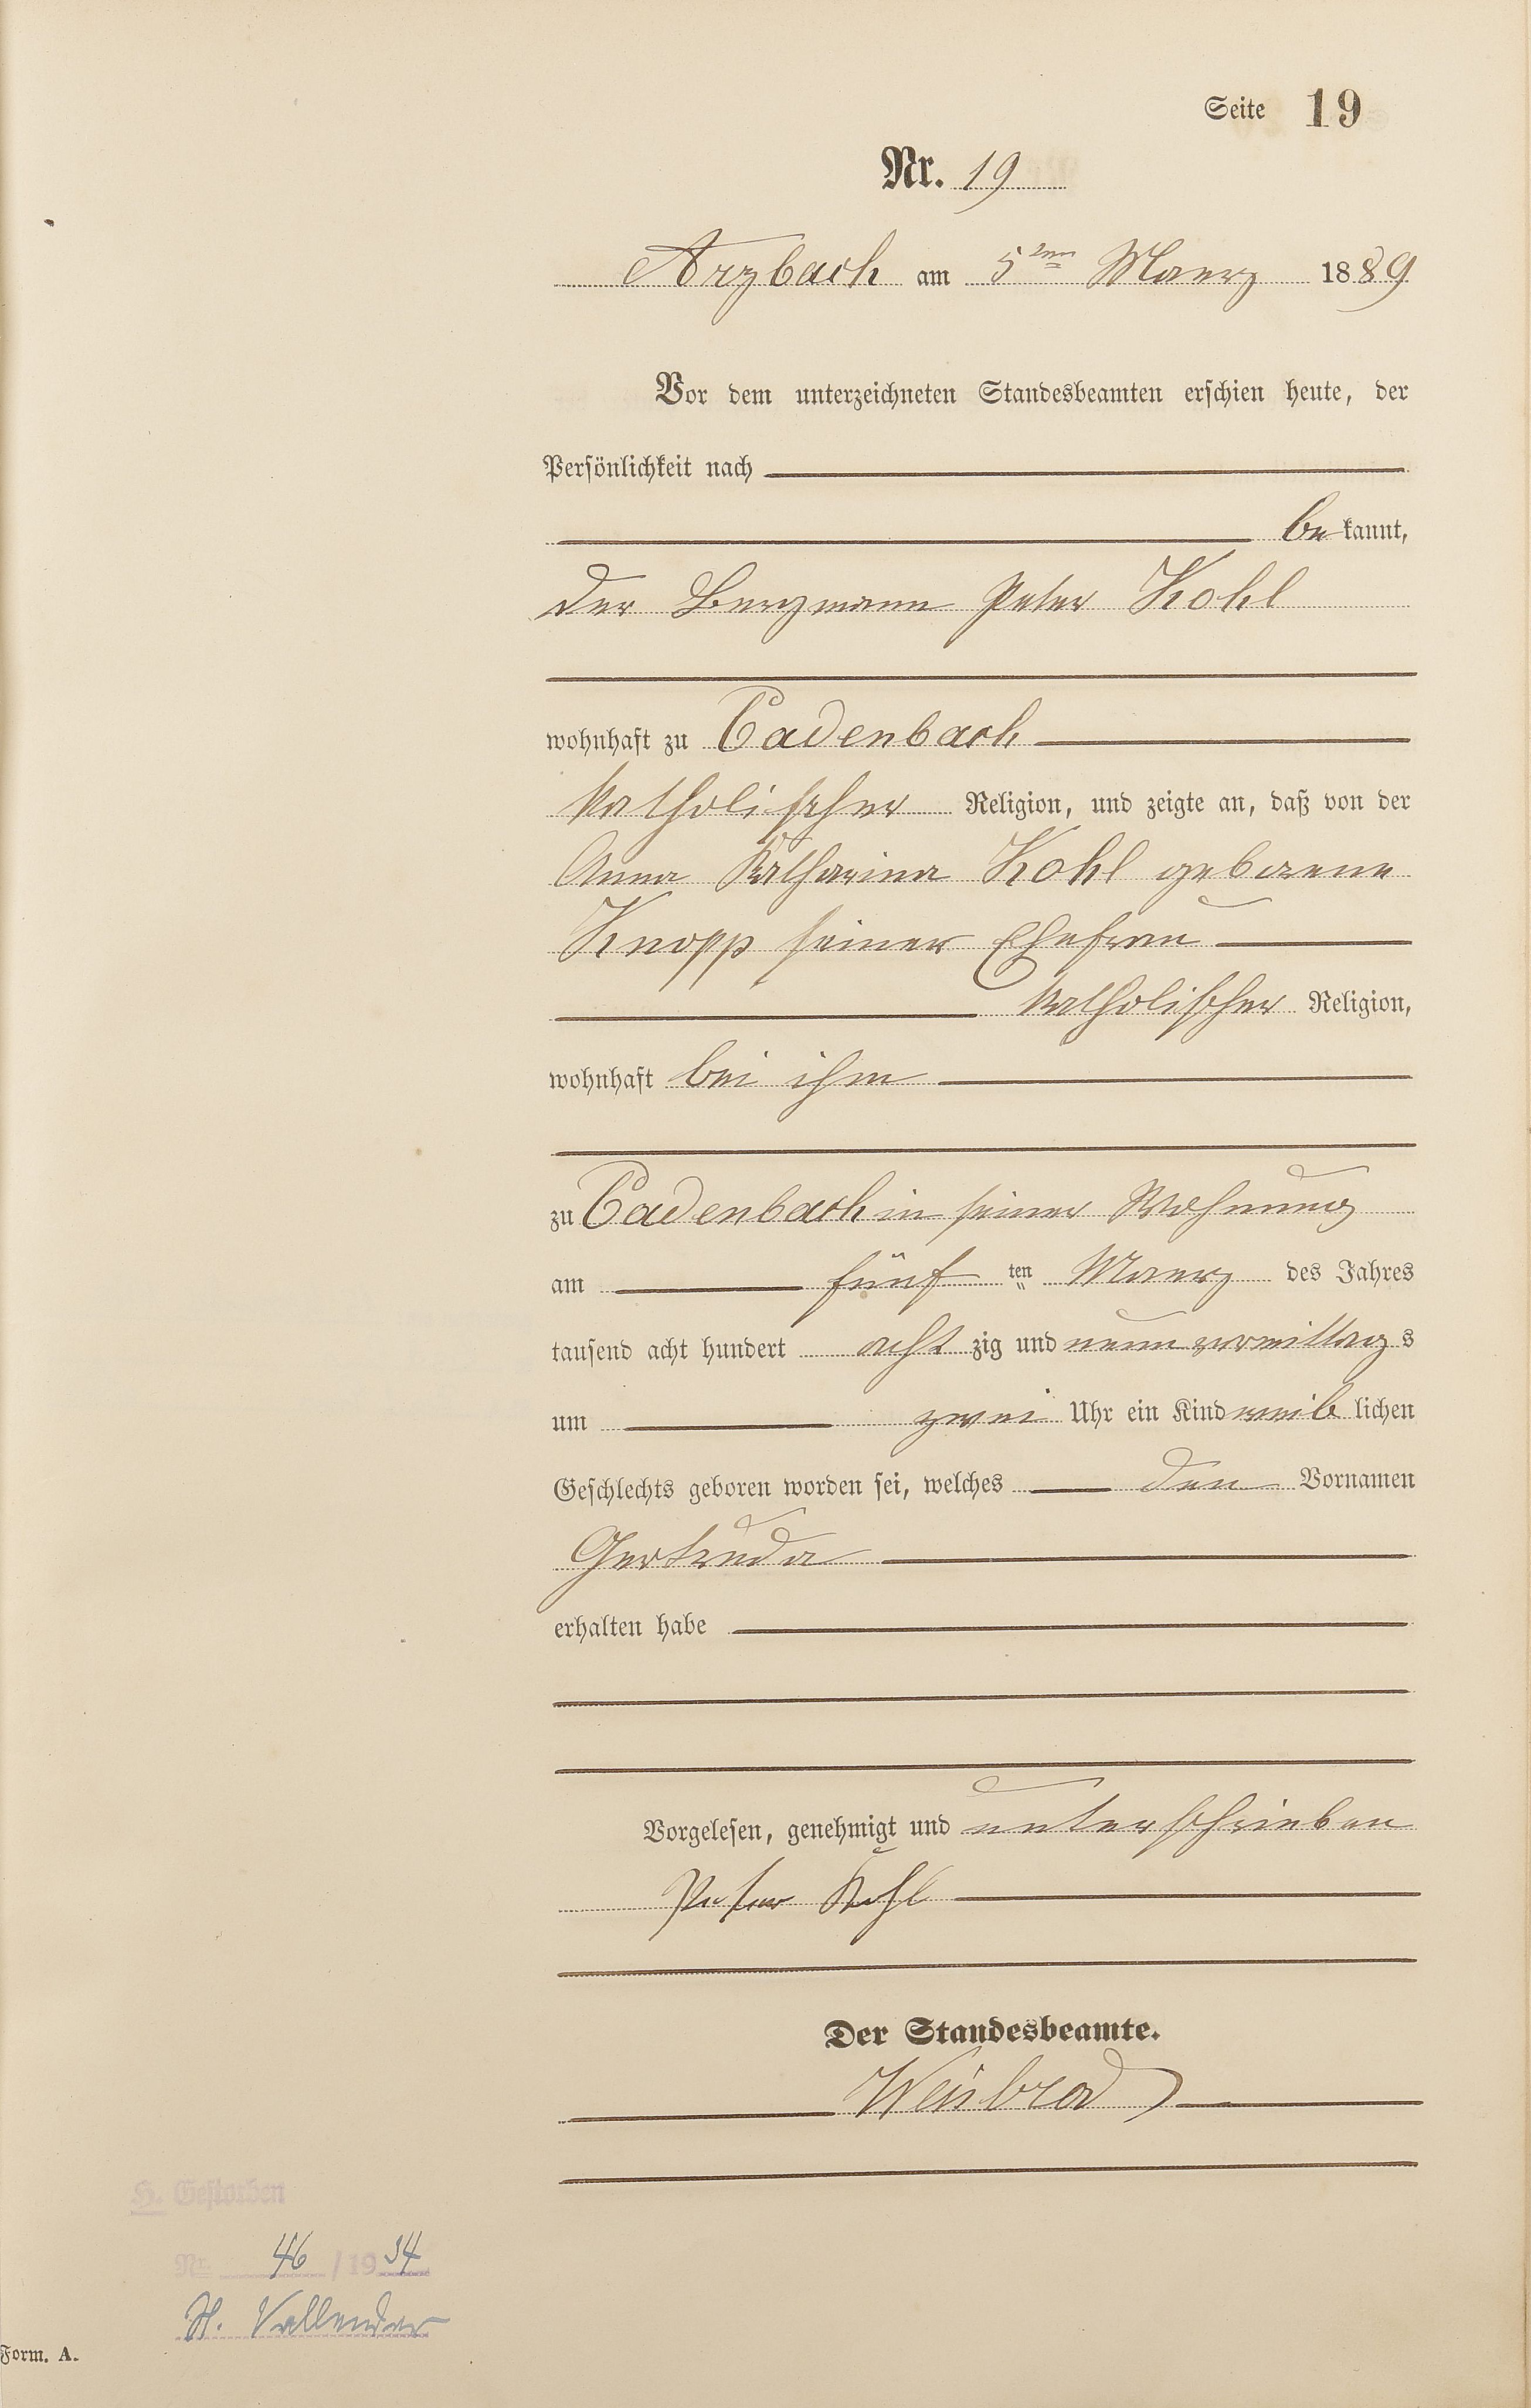 Seite 19
Nr. 19
Arzbach am 5ten Maerz 1889
Vor dem unterzeichneten Standesbeamten erschien heute, der
Persönlichkeit nach
bekannt,
der Bergmann Peter Kohl
wohnhaft zu Cadenbach
katholischer Religion, und zeigte an, daß von der
Anna Katharina Kohl geborene
Knopp seiner Ehefrau
katholischer Religion,
wohnhaft bei ihm
zu Cadenbach in seiner Wohnung
am fünften Maerz des Jahres
tausend acht hundert achtzig und neun vormittags
um zwei Uhr ein Kind weiblichen
Geschlechts geboren worden sei, welches den Vornamen
Gertruda
erhalten habe
Vorgelesen, genehmigt und unterschrieben
Peter Kohl
Der Standesbeamte.
Weisbrod
H. Gestorben
Nr. 46/1934
St. Vallendar
Form. A.